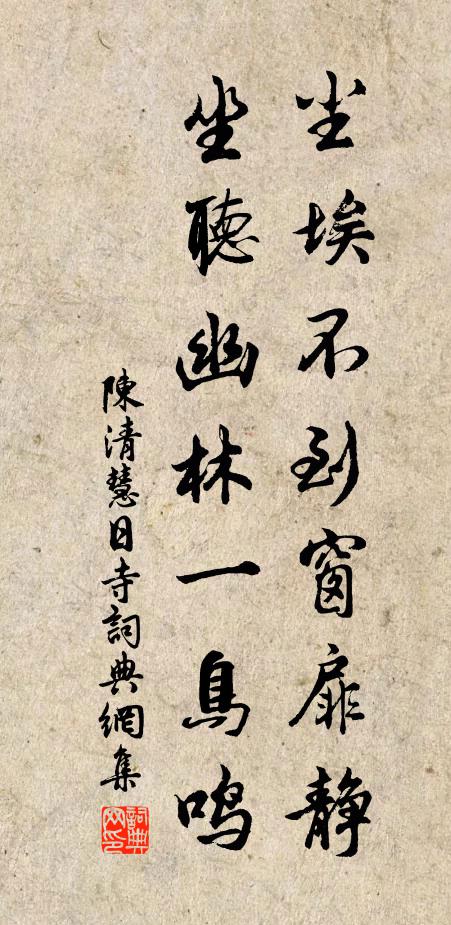 尘埃不到窗扉静
坐聽幽林一鳥鸣
陳清慧日寺詞典網集
詞典网印